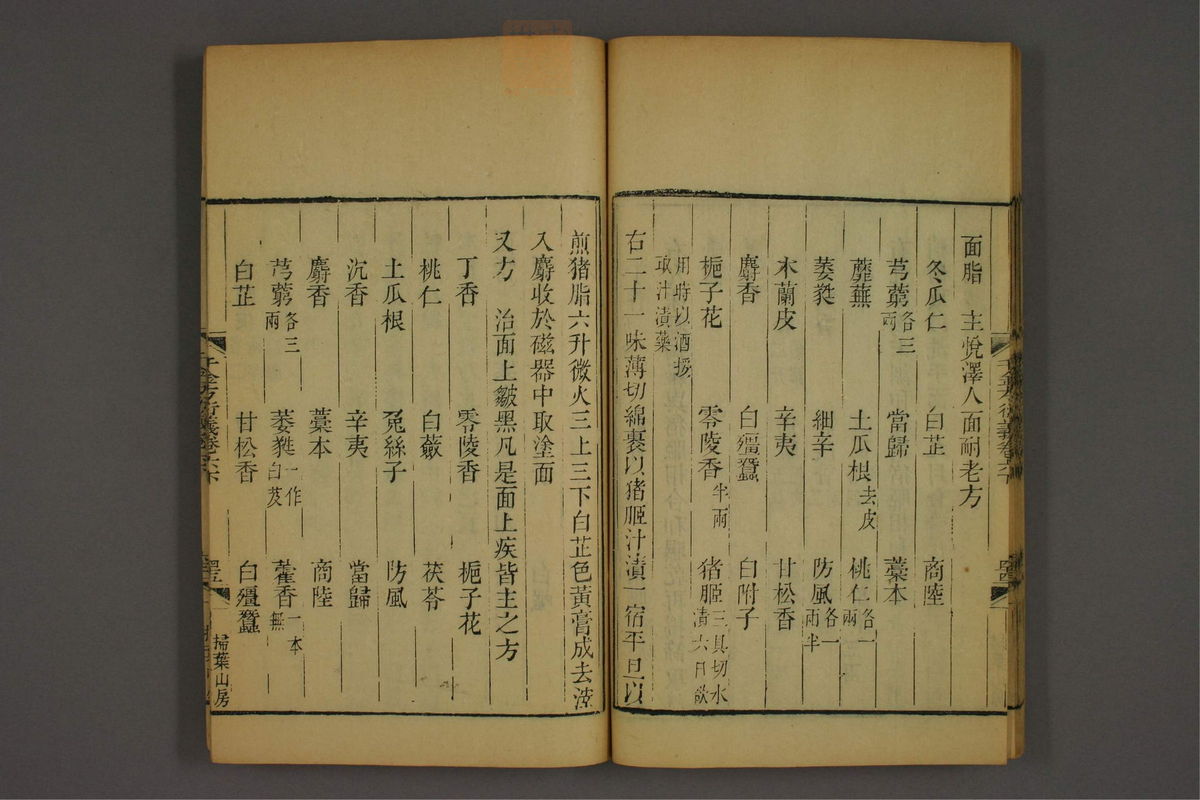 面脂　主悅澤人面耐老方
冬瓜仁　白芷　商陸
芎藭各三兩　當歸　藁本
蘼蕪　土瓜根去皮　桃仁各一兩
萎蕤　細辛　防風各一兩半
木蘭皮　辛夷　甘松香
麝香　白殭蠶　白附子
梔子花　零陵香半兩　猪胵三具切水漬六日欲
用時以酒挼取汁漬藥
右二十一味薄切綿裹以猪胵汁漬一宿平旦以
煎猪脂六升微火三上三下白芷色黃膏成去滓
入麝收於磁器中取塗面
又方　治面上皺黑凡是面上疾皆主之方
丁香　零陵香　梔子花
桃仁　白蘞　茯苓
土瓜根　兔絲子　防風
沉香　辛夷　當歸
麝香　藁本　商陸
芎藭各三兩　萎蕤一作白芨　藿香一本無
白芷　甘松香　白殭蠶
千金方衍義卷六下
掃葉山房